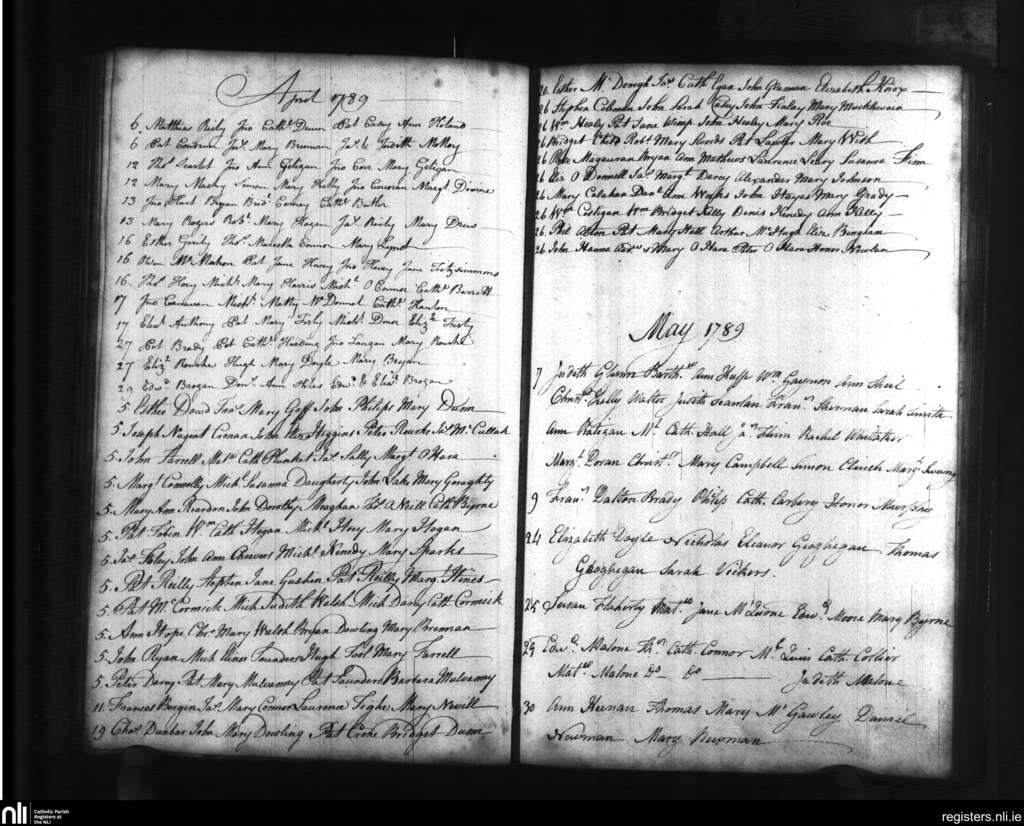 April 1789
6 Matthia Reily Jno Cath. Dunn Pat Casey Ann Holand
6 Pat Jas. Mary Brennan Jas. & Judith McKey
12 Thos Scarlet Jno Ann Geligan Jno Corr Mary Geligan
12 Mary Simon Mary Kelly Jno Corcoran Margt Devine
13 Jno Hart Bryan Bid. Cath. Butler
13 Mary Rogers Robt. Mary Hogan Jas. Reily Mary Drew
16 Esther Thos. Marcella Connor Mary
16 Own McMahon Pat Jane Henry Jno Henry Jane Fitzsimmons
16 Thos Hoey Michl. Mary Harris Michl. O Connor Cath. Barrett
17 Jno Canavan Michl. McDonnel Cath. Hanlon
17 Anthony Pat Mary Michl. Dunn Eliz.
27 Pat Brady Pat Cath. Harding Jno Langan Mary Rourke
27 Eliz. Rourke Hugh Mary Doyle Mary Bryan
29 Edwd Brogan Ann Edwd. & Brogan
5. Esther Dowd Mary Goff John Philips Mary Dunn
5. Joseph Nugent Conan John Higgins Peter Rourke McCullah
5. John Farrell Cath Plunket Jas Sally Margt O Hara
5. Margt Connolly Mich. Susanna Daugherty John Mary Geraghty
5. Mary Ann Reardon John Dorothy Meaghan Thos O Neill Cath. Byrne
5. Pat Tobin Wm. Cath Hogan Mich. Hoey Mary Hogan
5. Jas. Foley John Ann Cheevers Michl. Kenedy Mary Sparks
5. Pat Reilly Stephen Jane Pat Reilly Margt. Hines
5. Pat McCormick Mich Judith Walsh Mich Darcy Cath Cormick
5. Ann Hope Chr. Mary Walsh Bryan Dowling Mary Brennan
5. John Ryan Mich Elinor Saunders Hugh Mary Farrell
5. Peter Dery Pat Mary Mulvanny Pat Saunders Barbara Mulvanny
11. Frances Bergin Jas. Mary Connor Laurence Tighe Mary Nevill
19 Chas. Dunbar John Mary Dowling Pat Crone Bridget Dunn
20. Esther McDonogh Jas. Cath Egan John Gleeman Elizabeth Knox
26 Stephen Coleman John Sarah John Finlay Mary
26 Wm Healy Pat Jane Wimp John Healey Mary Roe
26 Bridget Child Robt. Mary Swords Pat Lawler Mary With
26 Rose Magauran Bryan Ann Mathews Lawrence Leary Susanna
26 O Donnell Jas. Margt. Darcy Alexander Mary Johnson
26 Mary Calahan Danl Ann Walks John Hayes Mary Grady
26 Wm Costigan Wm Bridget Kelly Denis Kenedy Ann Kelly
26 Phil Aston Pat Mary Hall Arthur McHugh Eliz. Bingham
26 John Hanna Andw Mary O Hara Peter O Hara Honor Nowlan
May 1789
7 Judith Barth. Ann Wm Gaynon Ann Sheil
Christ. Kelly Walter Judith Scanlan Fran. Sherman Sarah Smith
Ann Ratigan Mt. Cath Hall Flinn Rachel Whitaker
Margt. Doran Christ. Mary Campbell Simon Margt
9 Fran. Dalton Brady Philip Cath. Carbery Honor Murphy
24 Elizabeth Doyle Nicholas Eleanor Geoghegan Thomas
Geoghegan Sarah Vickers.
25 Susan Flaherty Jane McQuone Edwd Moore Mary Byrne
29 Edwd. Malone Cath. Connor Quin Cath. Collier
Malone Do Do Judith Malone
30 Ann Heenan Thomas Mary McGawley Daniel
Newman Mary Newman
nli Catholic Parish
Registers at
the NLI
registers.nli.ie